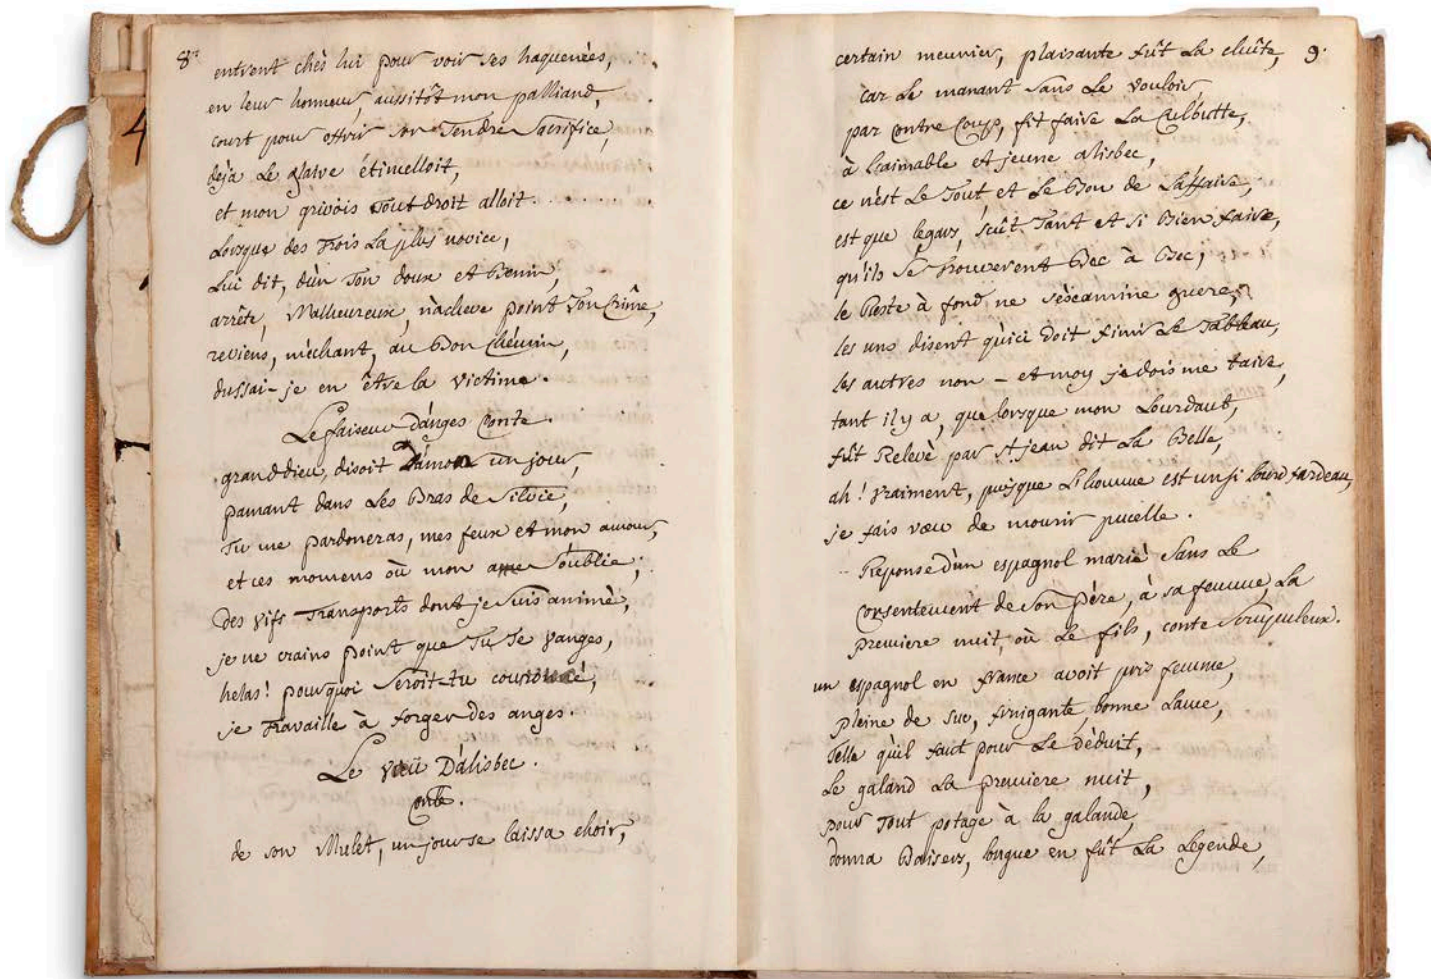 8.
entrent chès lui pour voir ses haquenées,
en leur honneur, aussitôt mon palliard,
court pour offrir son Tendre Sacrifice,
dèja Le glaive étincelloit,
et mon grivois Tout droit alloit........
Lorsque des Trois La plus novice,
Lui dit, d'ùn Ton doux et Benin,
arrête, Malheureux, n'acheve point Ton Crîme,
reviens, mèchant, au Bon chémin,
dussai-je en être la victime.
Le faiseur D'ánges Conte.
grand dieu, disoit Damon un jour,
pamant dans Les Bras de Silvie,
Tu me pardoneras, mes feux et mon amour,
et ces momens où mon ame S'oublie,
Des vifs Transports dont je Suis animè,
je ne crains point que Tu Te vanges,
helas! pourquoi Seroit-tu couroucé,
je Travaille à forger des anges.
Le vœu D'alisbec.
Conte.
de son Mulet, un jour se laissa choir,
certain meunier, plaisante fût La chûte, 9.
car Le manant Sans Le vouloir,
par Contre Coup, fit faire La Culbutte,
à L'aimable et jeune alisbec,
ce n'est Le Tout, et Le Bon de L'affaire,
est que légars, scût Tant et si Bien faire,
qu'ils Se Trouverent Bec à Bec,
le Reste à fond ne s'èxamine guere,
les uns disent qu'ici doit finir Le Tableau,
les autres non - et moy je dois me taire,
tant il y a, que lorsque mon Lourdaut,
fût Relevè par St. jean dit La Belle,
ah! vraiment, puisque L'homme est un si lourd fardeau,
je fais vœu de mourir pucelle.
Reponse d'ùn espagnol mariè Sans Le
Consentement de Son Père, à sa femme, La
premiere nuit, où Le fils, conte Scrupuleux.
un espagnol en france avoit pris femme,
pleine de suc, fringante, bonne Lame,
Telle qu'il faut pour Le dèduit,
Le galand La premiere nuit,
pour Tout potage à la galande,
donna Baisers, longue en fût La Legende,